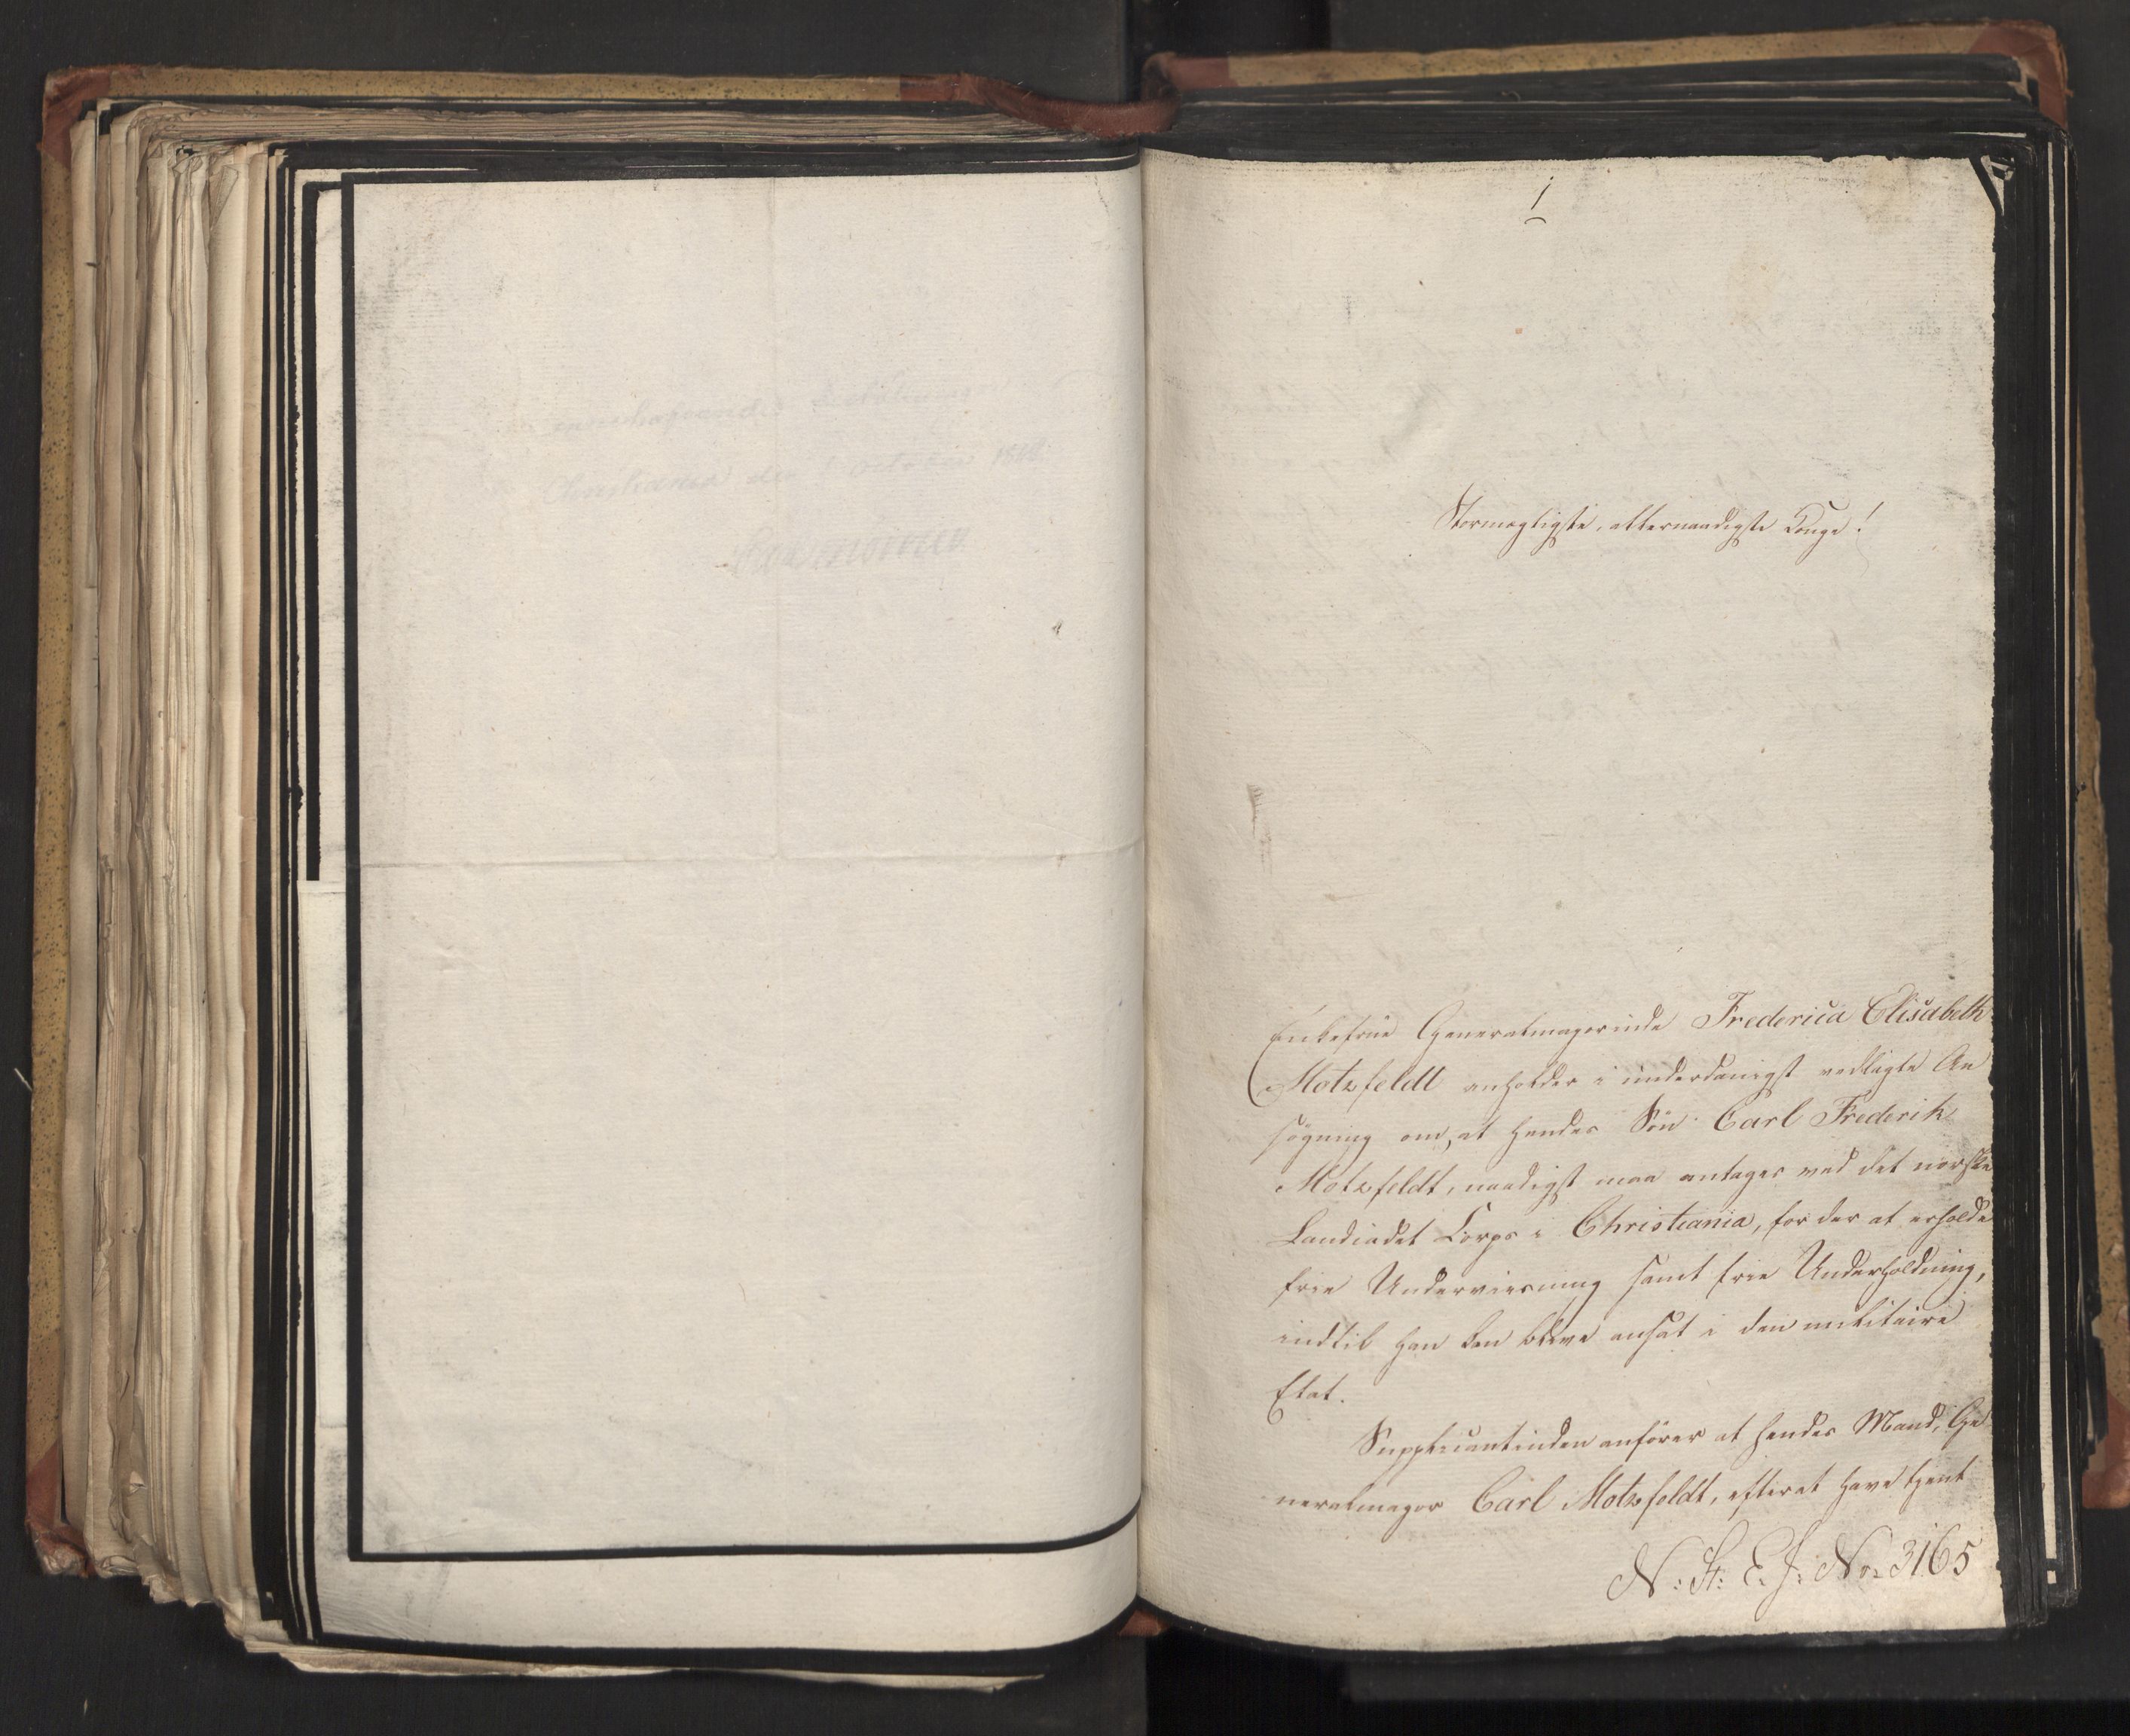 1
Stormægtigste, allernaadigste Konge!
Enkefrue Generalmajorinde Frederica Elisabeth
Motzfeldt anholder i underdanigst vedlagte An
søgning om, at hendes Søn Carl Frederik
Motzfeldt, naadigst maa antages ved det norske
Landcadet Corps i Christiania, for der at erholde
frie Underviisning samt frie Underholdning,
indtil han kan blive ansat i den militaire
Etat.
Supplicantinden anfører at hendes Mand, Ge
neralmajor Carl Motzfeldt, efter at have tjent
N: St: E. J: No: 3165